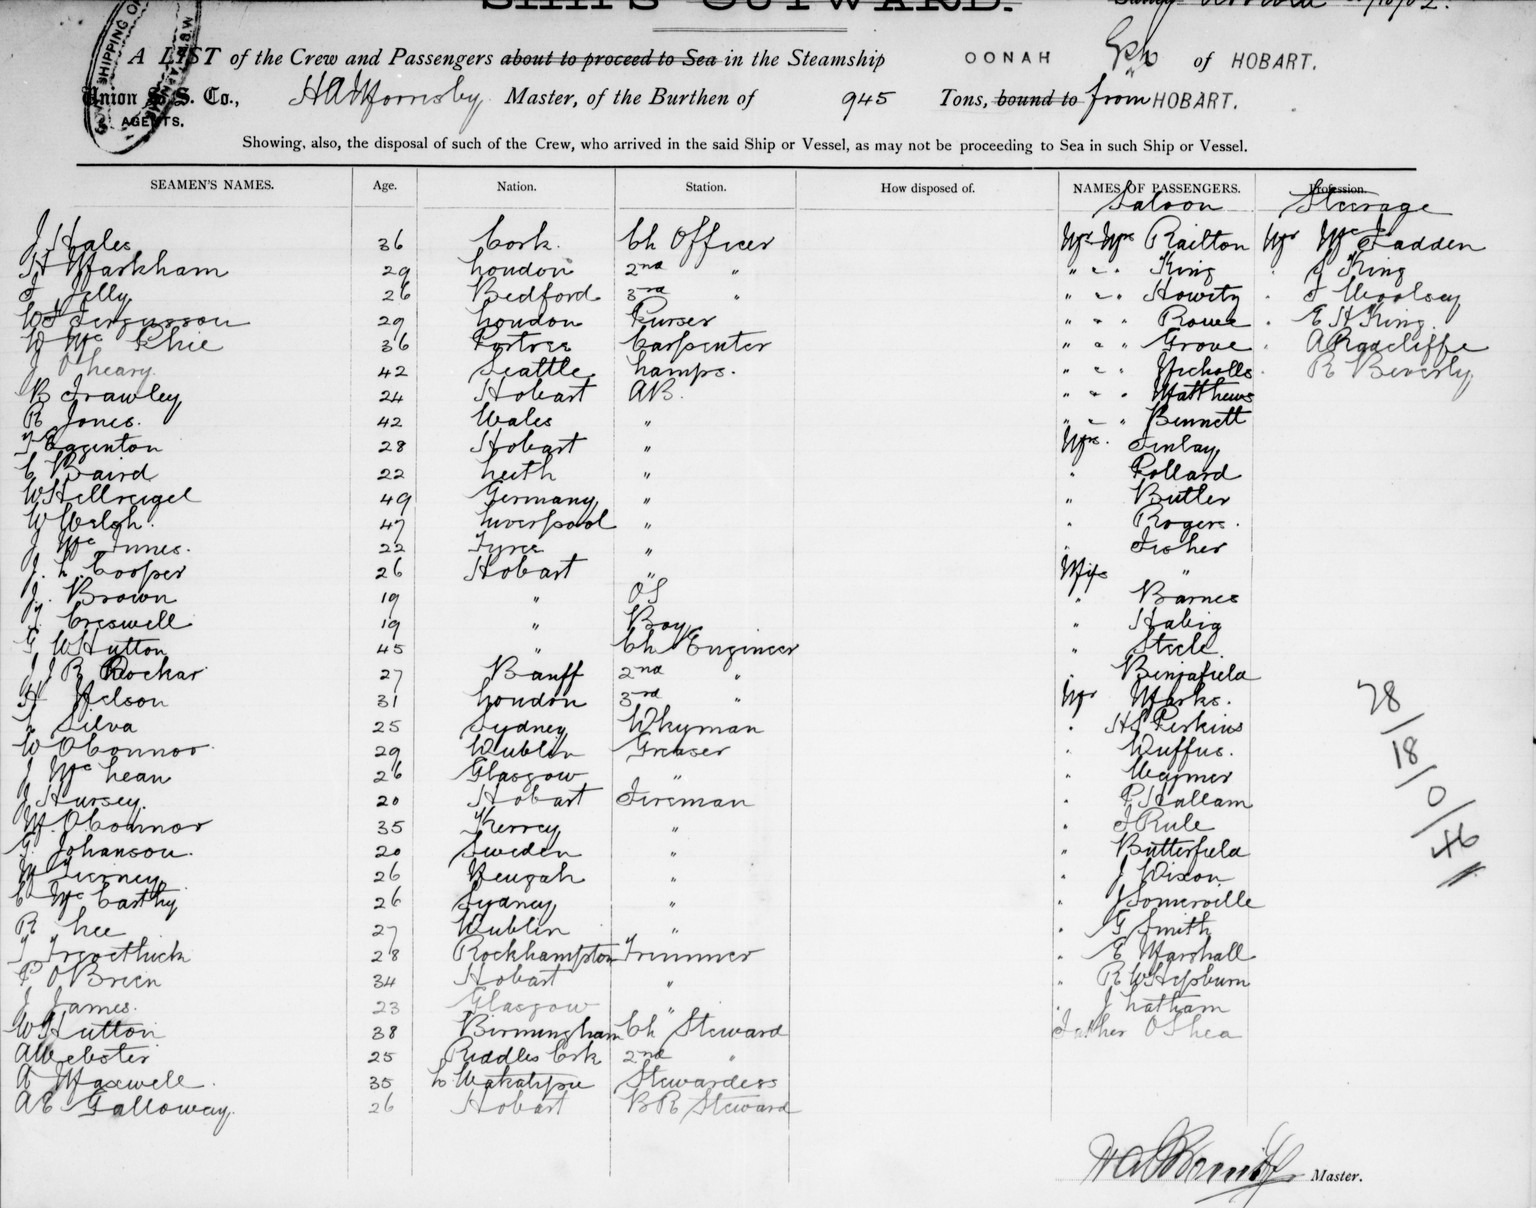 SHIPS OUTWARD.
A LIST of the Crew and Passengers about to proceed to Sea in the Steamship OONAH of HOBART.
Union S. S. Co., Master, of the Burthen of 945 Tons, bound to from HOBART.
AGENTS.
Showing, also, the disposal of such of the Crew, who arrived in the said Ship or Vessel, as may not be proceeding to Sea in such Ship or Vessel.
SEAMEN'S NAMES. Age. Nation. Station. How disposed of. NAMES OF PASSENGERS. Profession.
Saloon Steerage
J Hales 36 Cork. Ch Officer Mr Mrs Railton Mr McFadden
H Markham 29 London 2nd " " " " King " J King
J Jelly 26 Bedford 3rd " " " " Howitz " J Woolsey
W J Fergusson 29 London Purser " " " Rowe " E H King.
Mc Phie 36 Portree Carpenter " " " Grove " A Radcliffe
J O'Leary. 42 Seattle Lamps. " " " Nicholls " R Beverly
B Frawley 24 Hobart AB. " " " Matthews
R Jones. 42 Wales " " " " Bennett
T Egginton 28 Hobart " Mrs. Finlay
C Baird 22 Leith " " Pollard
W Hellreigel 49 Germany " " Butler
W Welsh. 47 Liverpool " " Rogers.
J McInnes. 22 Tyree " " Fisher
J. L. Cooper 26 Hobart " Miss "
J. Brown 19 " OS " Barnes
Creswell 19 " Boy " Habig
G W Hutton 45 " Ch Engineer " Steele
J J R Dockar 27 Banff 2nd " " Binjafield
H Nelson 31 London 3rd " Mr Marks.
Silva 25 Sydney Wkyman " H S Perkins
W O'Connor 29 Dublin Greaser " Duffus.
J McLean 26 Glasgow " " Weymer
J Hursey. 20 Hobart Fireman " P Hallam
M. O'Connor 35 Kerrey " " J Rule
G. Johanson. 20 Sweden " " Butterfield
M Tierney 26 Nenagh " " J Dixon
C McCarthy 26 Sydney " " J Somerville
R Lee 27 Dublin " " G Smith
T Trevethick 28 Rockhampton Trimmer " E Marshall
P O'Brien 34 Hobart " " R W Hepburn
J James. 23 Glasgow " " J Latham
W Hutton 38 Birmingham Ch Steward Father O'Shea
A Webster 25 Ruddles Cork 2nd "
A Maxwell. 35 L. Wakatipu Stewardess
A E Galloway. 26 Hobart BR Steward
28/18/0/46
Master.